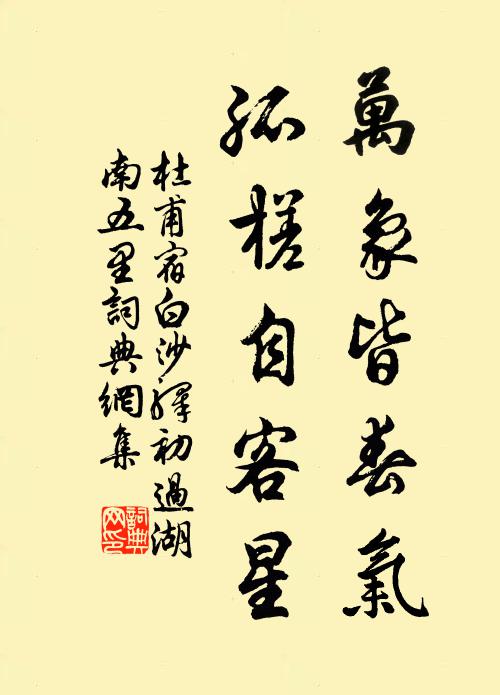 萬象皆春氣
孤槎自客星
杜甫宿白沙驛初過湖
南五里詞典網集
詞典網印